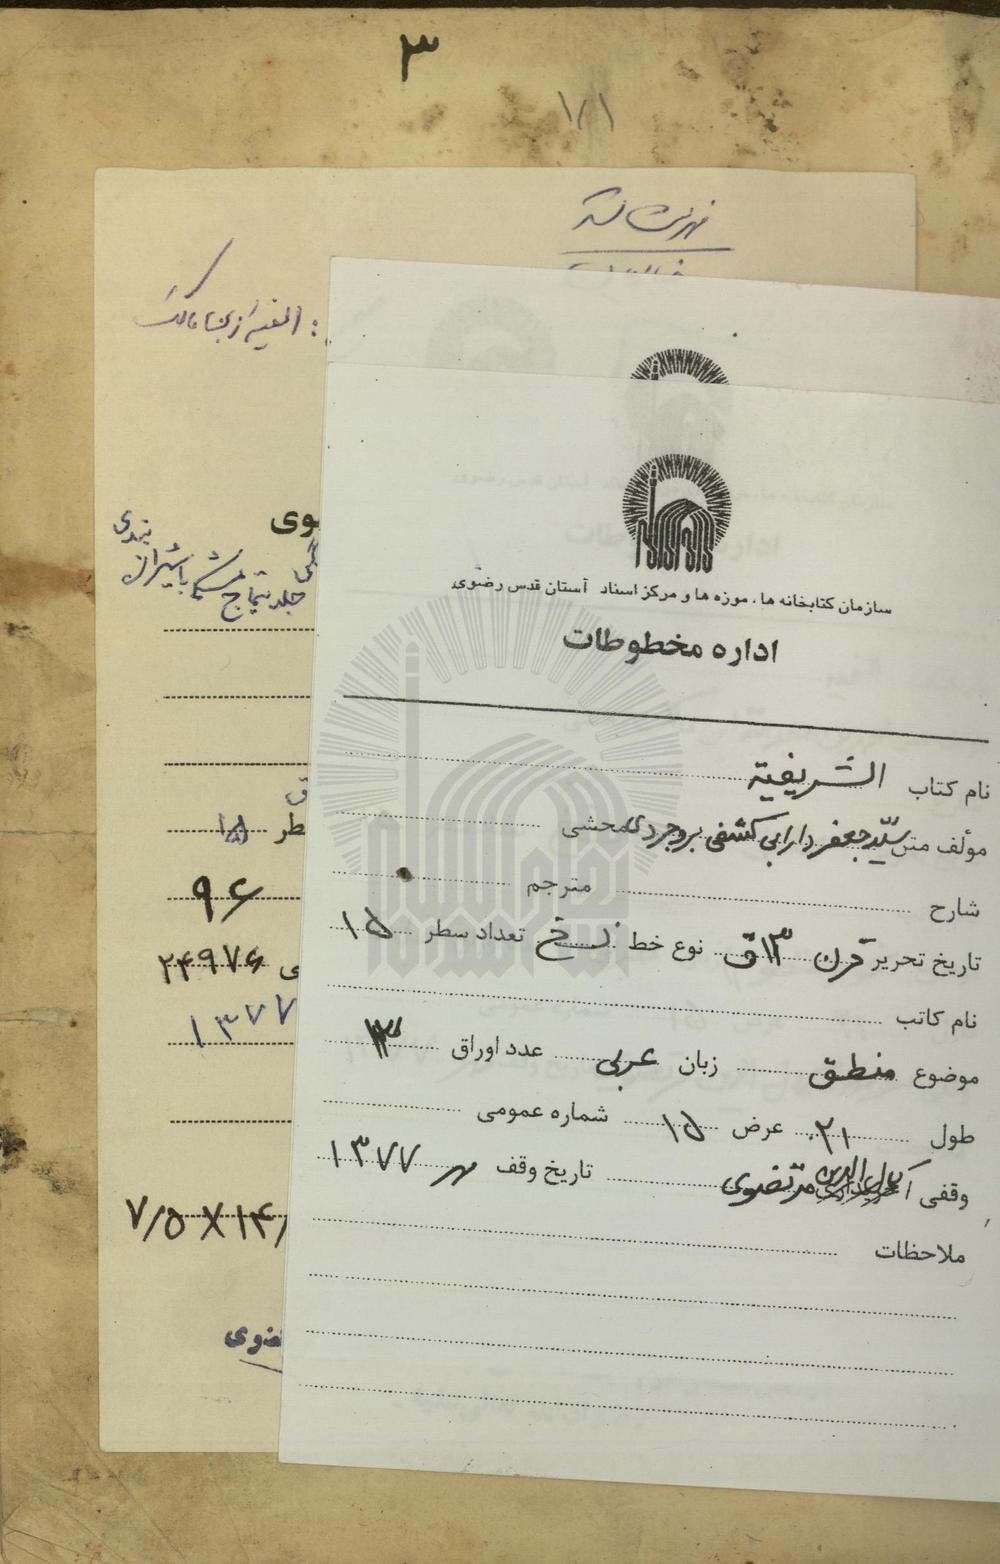 ۳
۱/۱
فهرست شد
: الفیه از ابن مالک
وی
جلد تیماج مشکی با شیرازه بندی
طر ۱۵
۹۶
ی ۲۴۹۷۶
۱۳۷۷
۷/۵ X ۱۴/
ضوی
سازمان کتابخانه ها، موزه ها و مرکز اسناد آستان قدس رضوی
اداره مخطوطات
نام کتاب الشریفیة
مؤلف متن سیّد جعفر دارابی کشفی بروجردی محشی
شارح مترجم
تاریخ تحریر قرن ۱۳ق نوع خط نسخ تعداد سطر ۱۵
نام کاتب
موضوع منطق زبان عربی عدد اوراق
طول ۲۱ عرض ۱۵ شماره عمومی
وقفی مرتضوی تاریخ وقف مهر ۱۳۷۷
ملاحظات